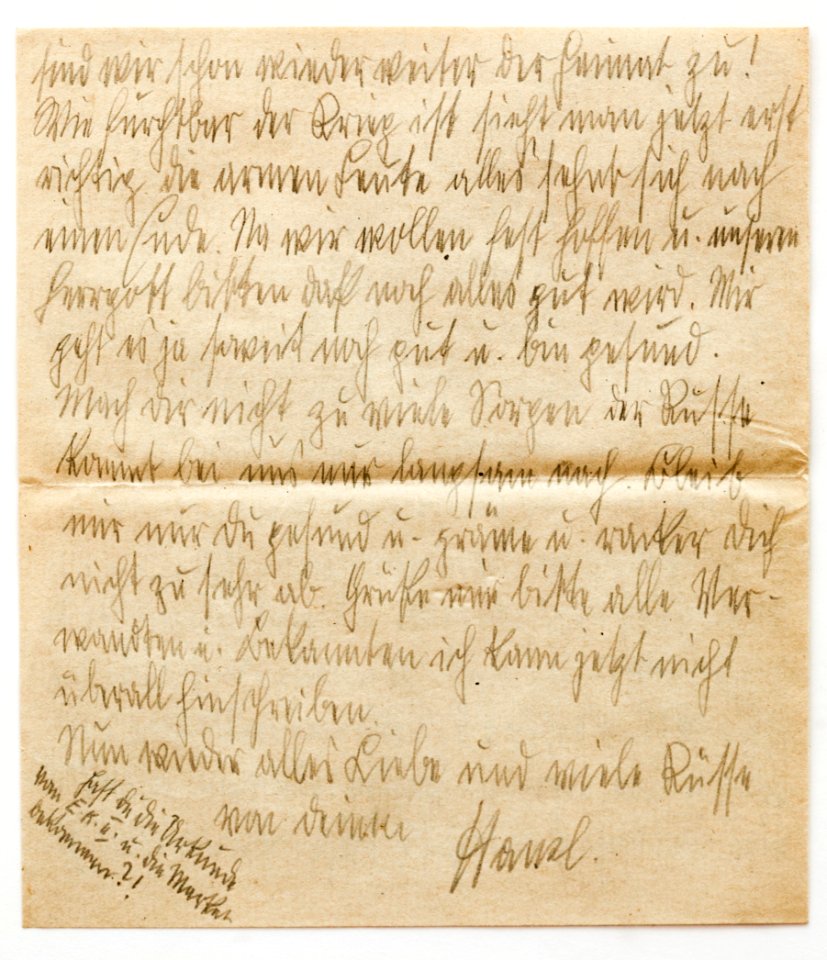 sind wir schon wieder weiter der Heimat zu!
Wie furchtbar der Krieg ist sieht man jetzt erst
richtig die armen Leute alles sehnt sich nach
einen Ende. Na wir wollen fest hoffen u. unseren
Herrgott bitten daß noch alles gut wird. Mir
geht es ja soweit noch gut u. bin gesund.
Mach dir nicht zu viele Sorgen der Russe
kommt bei uns nur langsam nach. Bleib
mir nur du gesund u. gräme u. racker dich
nicht zu sehr ab. Grüße mir bitte alle Ver-
wandten u. Bekannten ich kann jetzt nicht
überall hinschreiben.
Nun wieder alles Liebe und viele Küsse
von deinem
Hansl.
Hast du die Urkunde
vom E.K. II. u. die Marken
bekommen?!